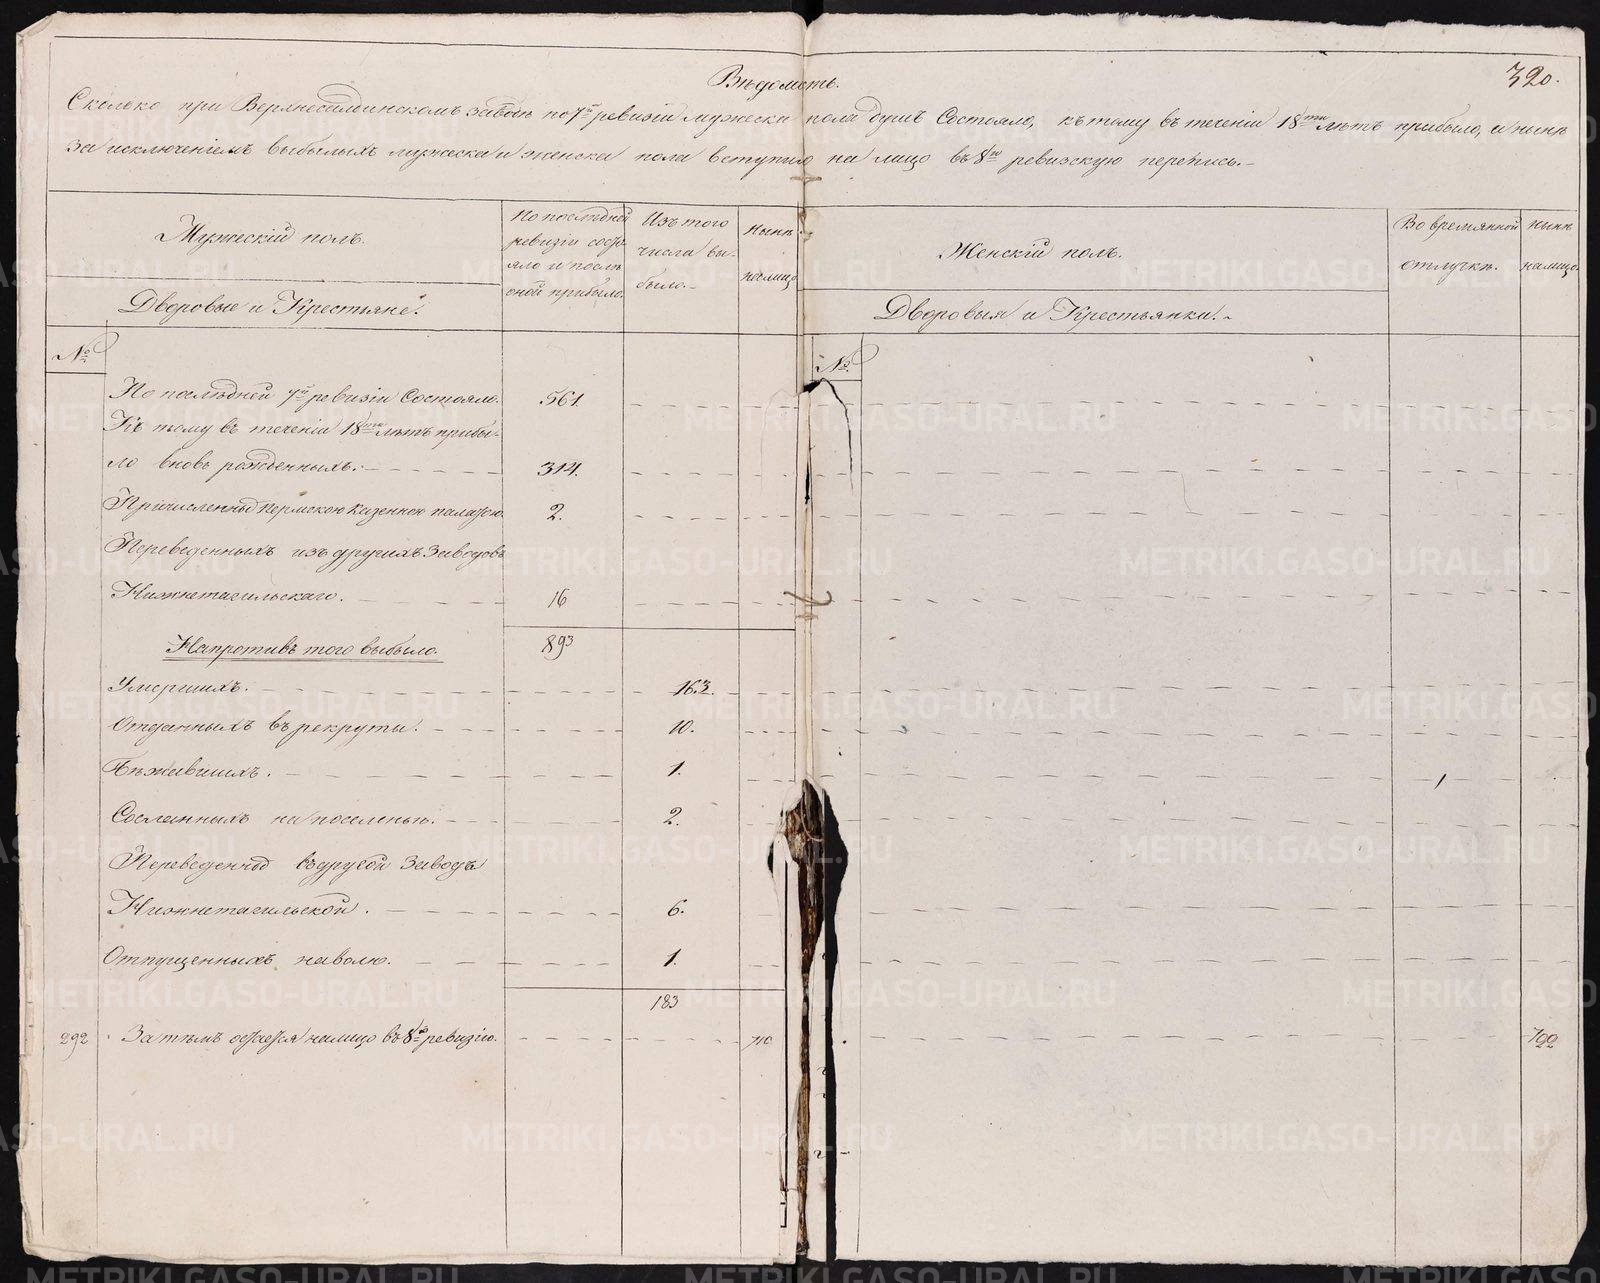 320.
Вѣдомость.
Сколько при Верхнесалдинскомъ заводѣ по 7й ревизіи мужеска пола душъ Состояло, къ тому въ теченіи 18ти лѣтъ прибыло, и нынѣ
За исключеніемъ выбылыхъ мужеска и женска пола вступило на лицо въ 8ю ревизскую перепись.-
Мужескій полъ.
По послѣдней
ревизіи состо-
яло и послѣ
оной прибыло.
Изъ того
числа вы-
было.-
Нынѣ
налицо.
Женскій полъ.
Во времянной
отлучкѣ.
Нынѣ
налицо.
Дворовые и Крестьяне.
Дворовыя и Крестьянки.-
№
№.
По послѣдней 7й ревизіи Состояло. 561.
Къ тому въ теченіи 18ти лѣтъ прибы-
ло вновь рожденныхъ. 314.
Причисленны Пермскою Казенною палатою. 2.
Переведенныхъ изъ другихъ Заводовъ
Нижнетагильскаго. 16
893
Напротивъ того выбыло.
Умершихъ. 163.
Отданныхъ въ рекруты. 10.
Бѣжавшихъ. 1. 1
Сосланныхъ на поселенье. 2.
Переведенно въ другой Заводъ
Нижнетагильской. 6.
Отпущенныхъ наволю. 1.
183
292 Затѣмъ остается налицо въ 8ю ревизію. 710 799
METRIKI.GASO-URAL.RU